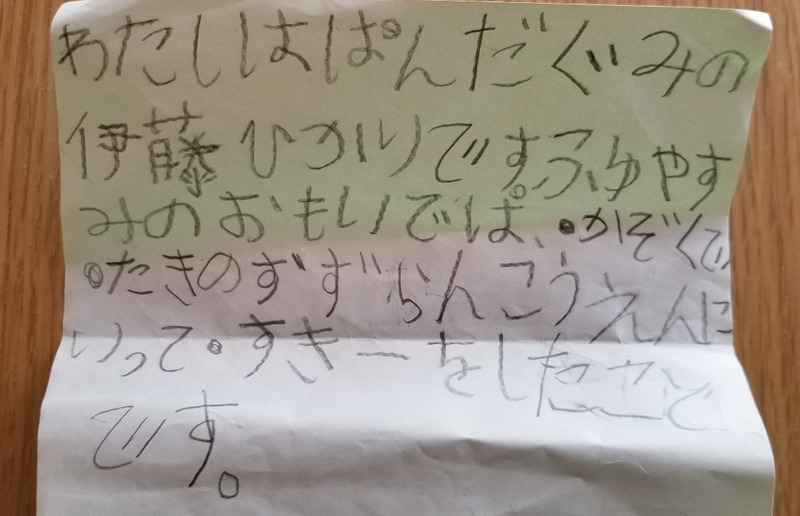 わたしはぱんだぐみの
伊藤ひかりです。ふゆやす
みのおもいでは、・かぞくで
・たきのずずらんこうえんに
いって・すきーをしたこと
です。